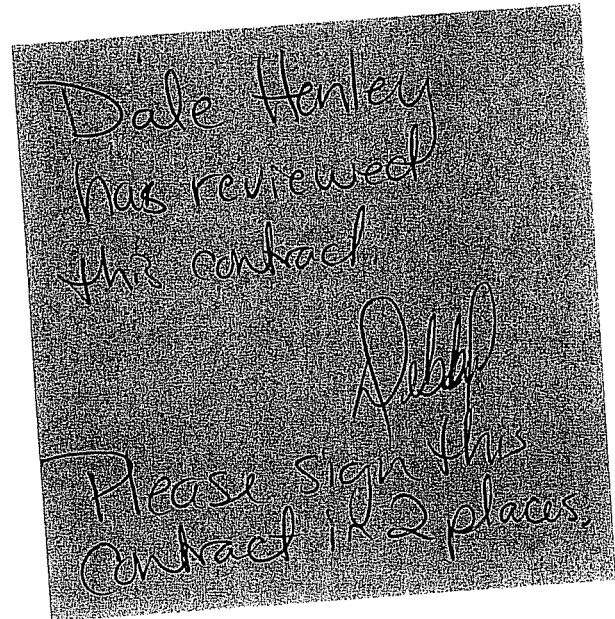 Dale Henley
has reviewed
this contract.
Debbi
Please sign this
contract in 2 places.